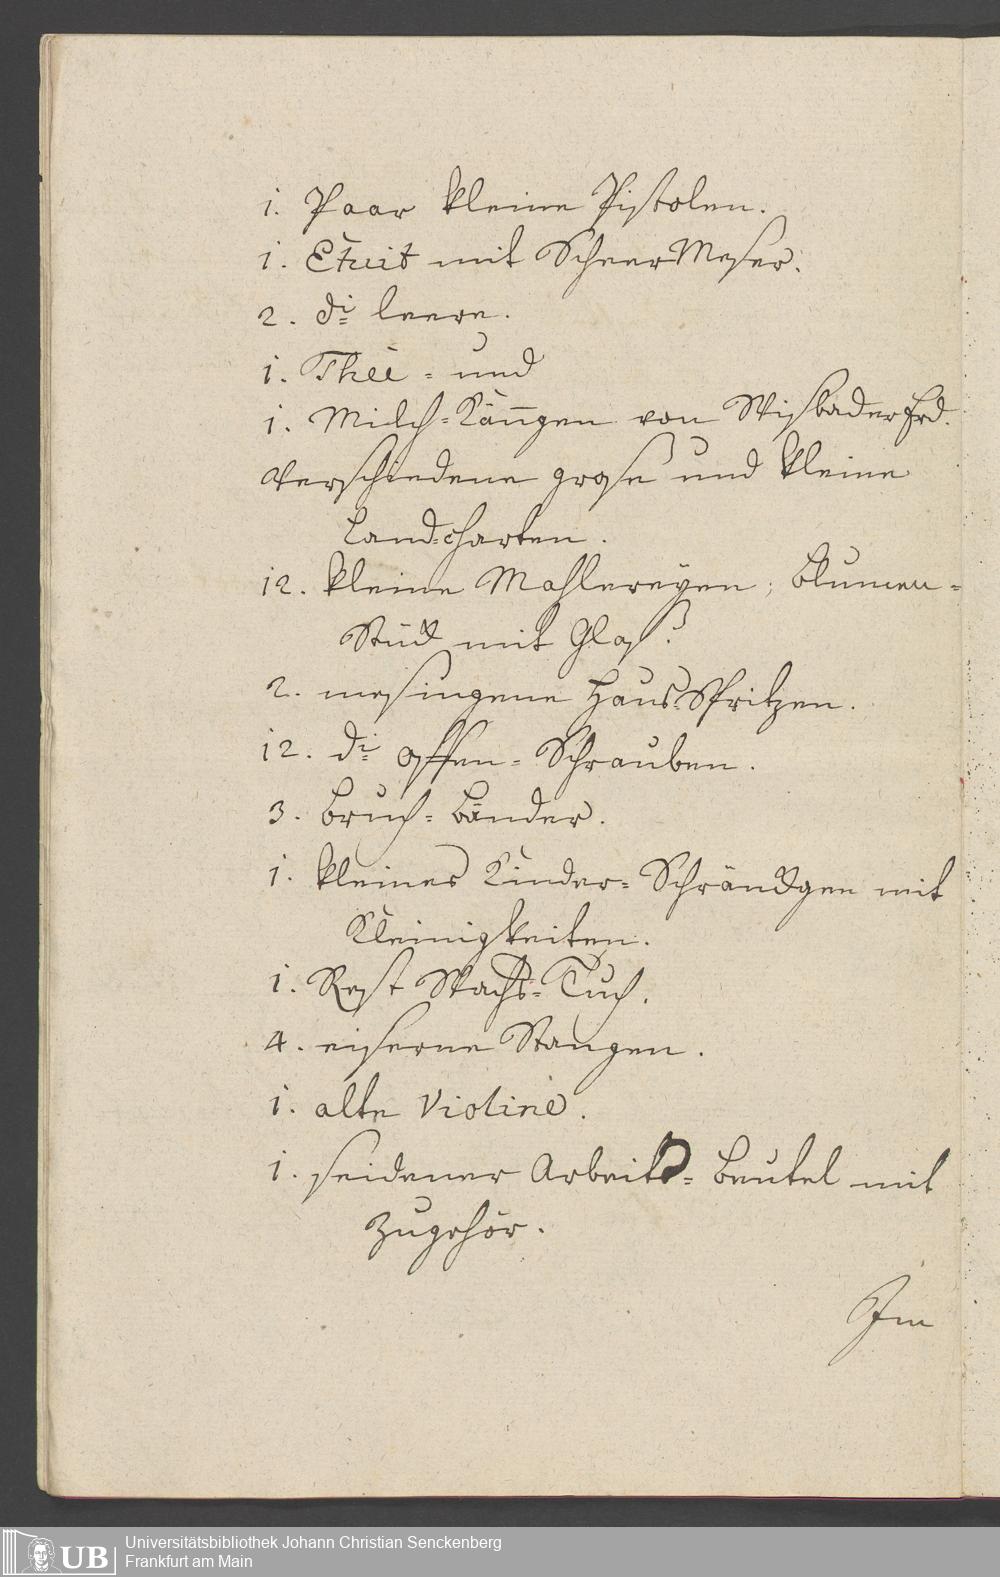 1. Paar kleine Pistolen.
1. Etuit mit ScheerMeser.
2. di leere.
1. Thee= und
1. Milch=Kän̄gen von WisbaderErd.
Verschiedene grose und kleine
Land=charten.
12. kleine Mahlereyen, Blumen=
Stück mit Glas?
2. mesingene Haus=Spritzen.
12. di Offen=Schrauben.
3. Bruch=Bänder.
1. kleines Kinder=Schränckgen mit
Kleinigkeiten.
1. Rest Wachs=Tuch.
4. eiserne Stangen.
1. alte Violine.
1. seidener Arbeits=Beutel mit
Zugehör.
Im
UB Universitätsbibliothek Johann Christian Senckenberg
Frankfurt am Main